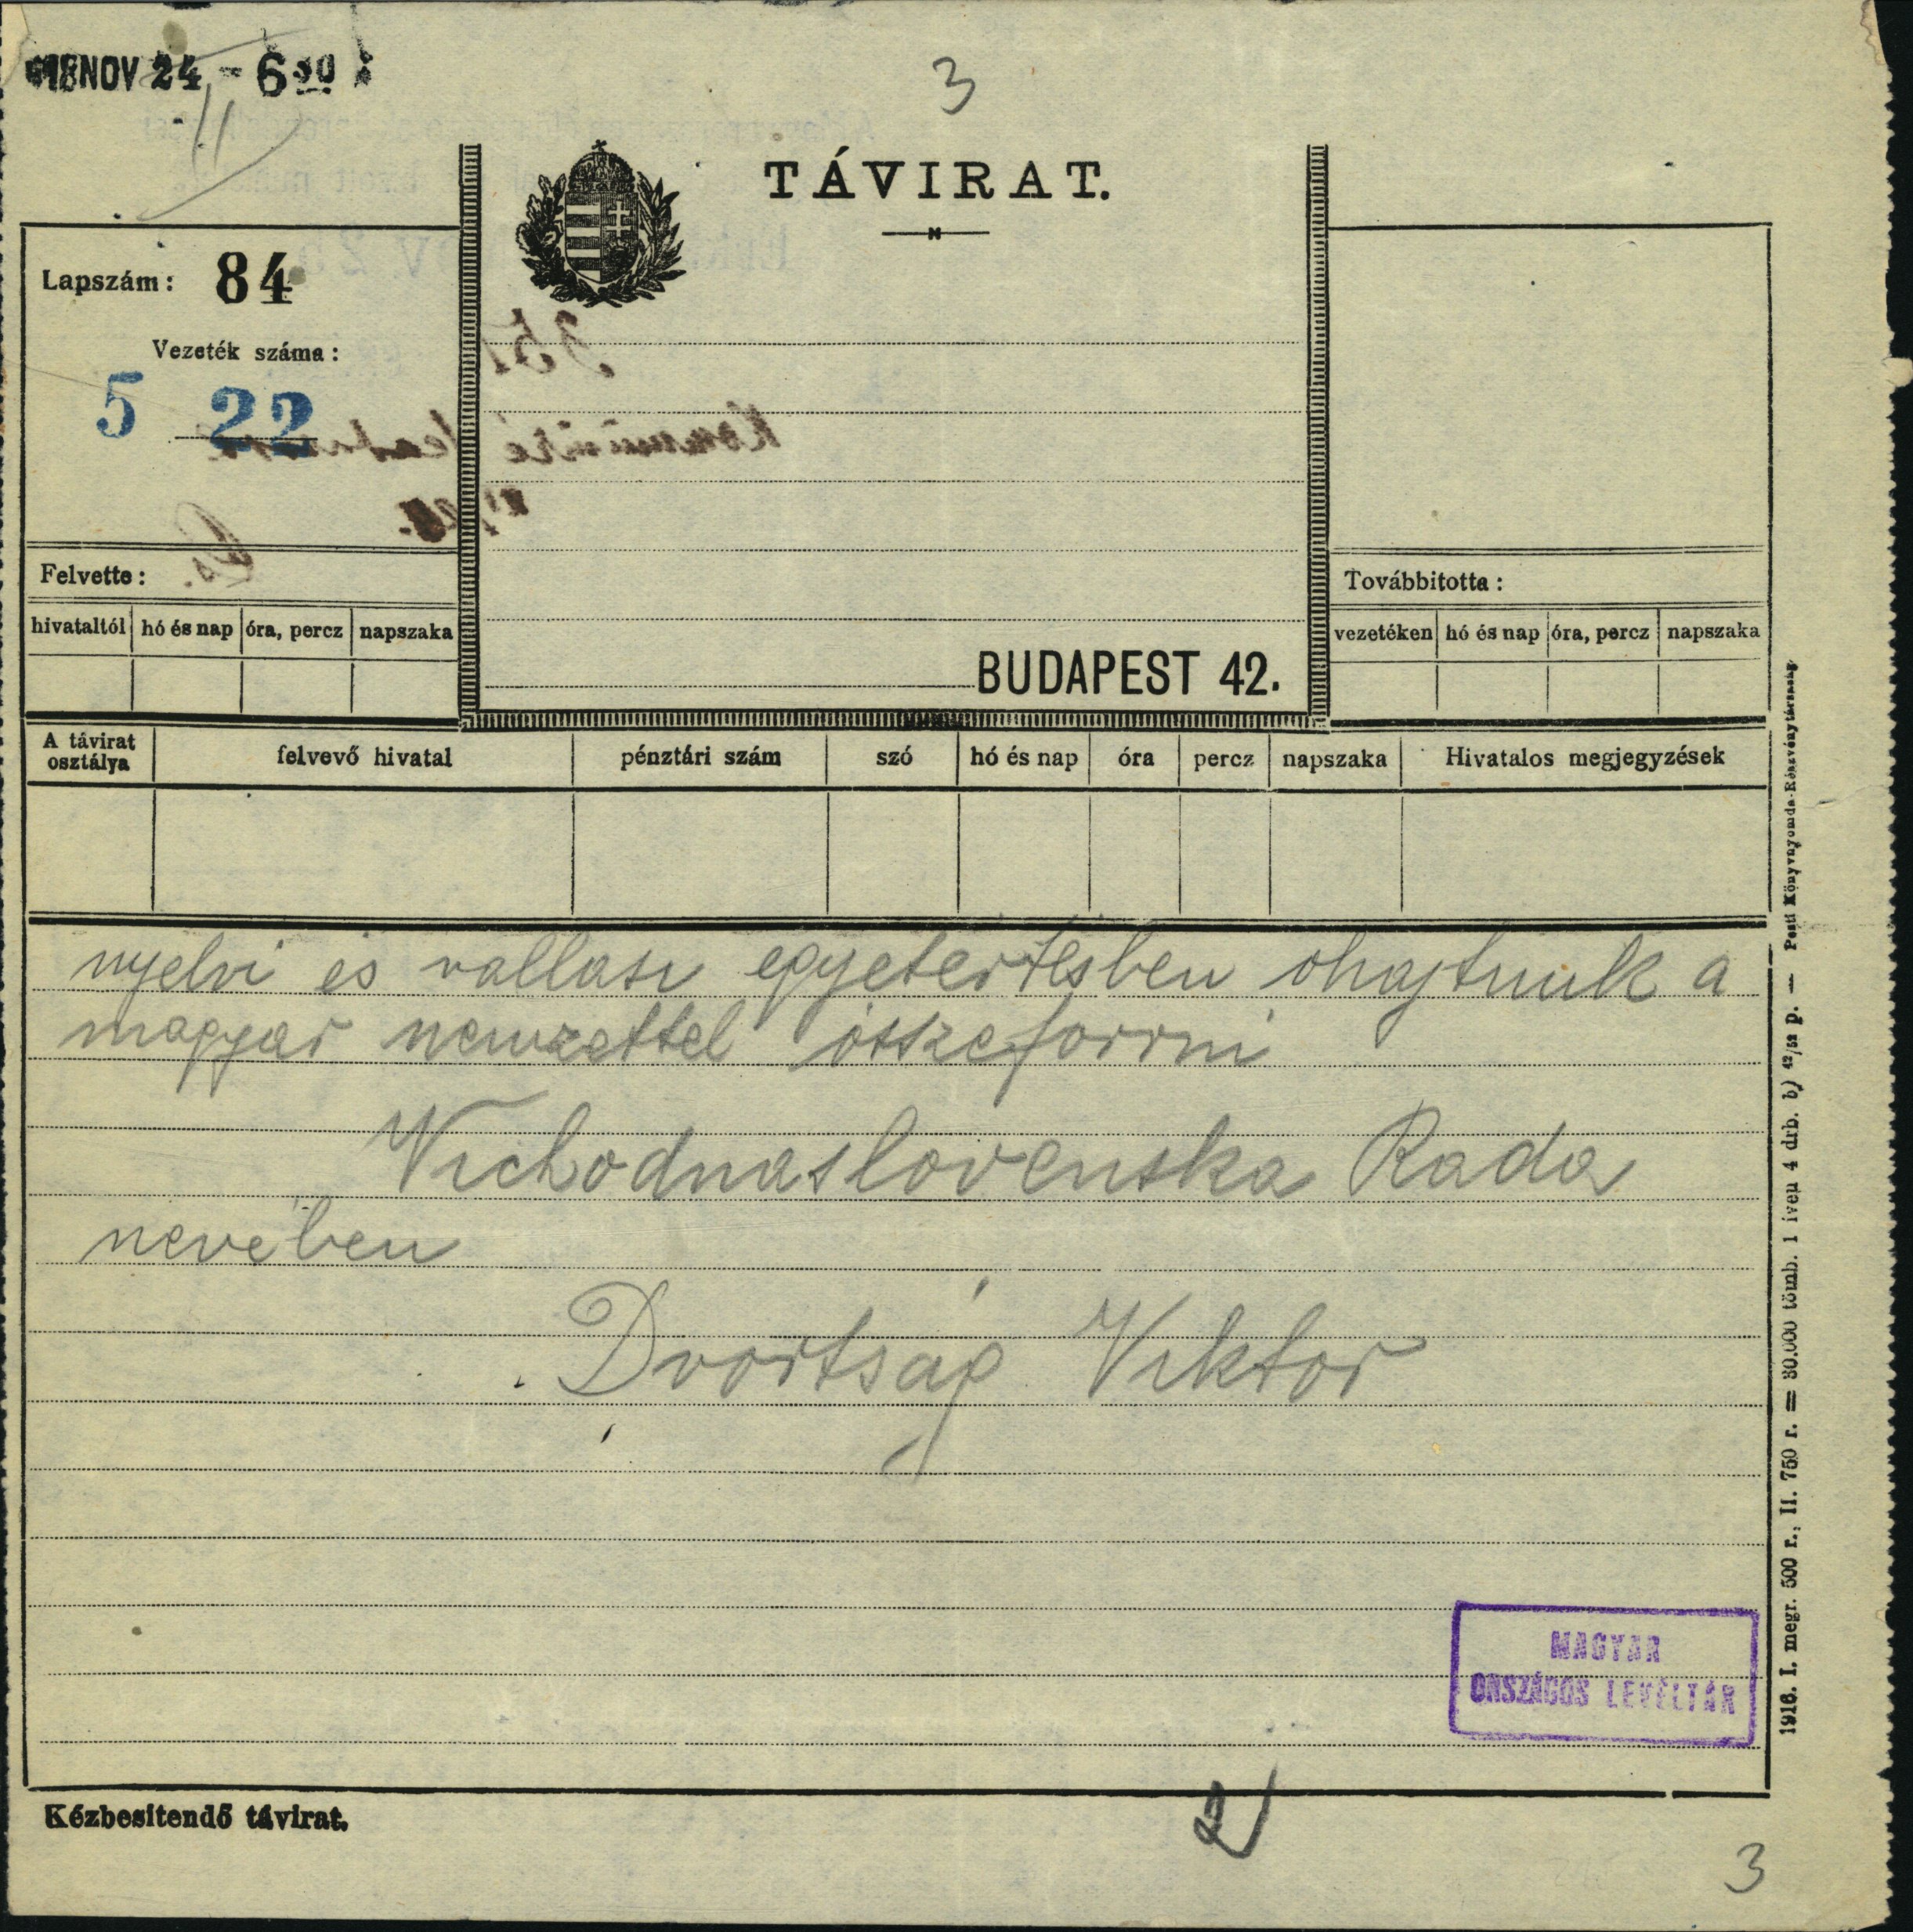 1918 NOV 24 - 6 30
11
3
TÁVIRAT.
Lapszám: 84
Vezeték száma:
5 22
351
Kommüniké
Felvette:
hivataltól hó és nap óra, percz napszaka
Továbbitotta:
vezetéken hó és nap óra, percz napszaka
BUDAPEST 42.
A távirat osztálya felvevő hivatal pénztári szám szó hó és nap óra percz napszaka Hivatalos megjegyzések
nyelvi es vallasi egyetertésben ohajtunk a
magyar nemzettel összeforrni
Vichodnaslovenska Rada
nevében
Dvortság Viktor
MAGYAR
ORSZÁGOS LEVÉLTÁR
Kézbesitendő távirat.
2
3
1916. I. megr. 500 r., II. 750 r. = 30.000 tömb. 1 iven 4 drb. b) 42/52 p. — Pesti Könyvnyomda-Részvénytársaság.